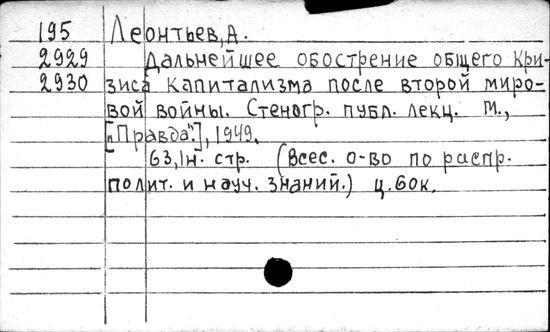 195 Леонтьев, А.
2929 Дальнейшее обострение общего кри-
2930 зиса капитализма после второй миро-
вой войны. Стеногр. публ. лекц. М.,
["Правда"], 1949.
63,1н. стр. (Всес. о-во по распр.
полит. и науч. знаний.) ц. 60к.